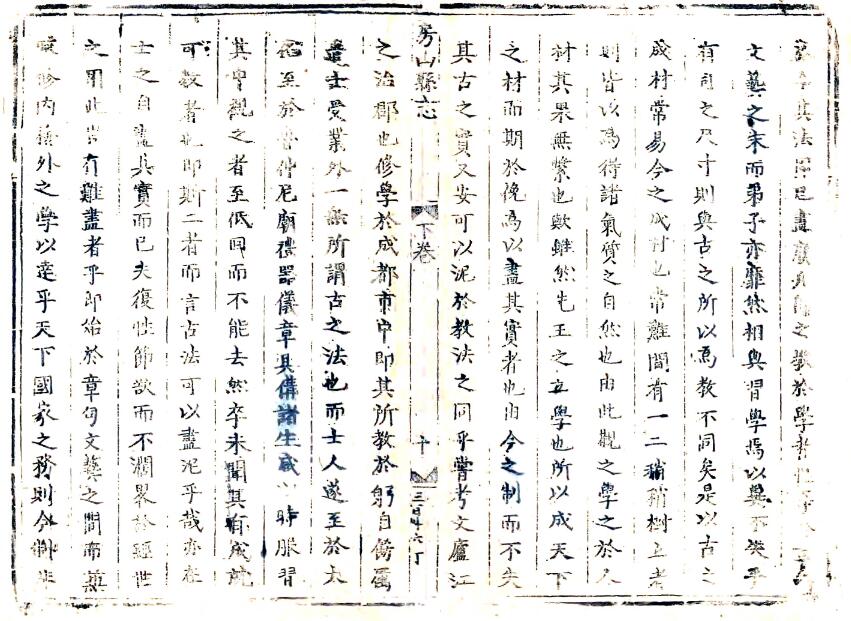 其法
文藝之末而弟子亦靡然相與習學焉以冀不失乎
有司之尺寸則與古之所以為教不同矣是以古之
成材常易今之成材也常難間有一二稍稍樹立者
則皆以為得諸氣質之自然也由此觀之學之於人
材其果無繫也歟雖然先王之立學也所以成天下
之材而期於俛焉以盡其實者也由今之制而不失
其古之實又安可以泥於教法之同乎嘗考文廬江
房山縣志
下卷
十
之治郡也修學於成都市中即其所教於躬自飭厲
遣士受業外一無所謂古之法也而士人遂至於大
至於魯仲尼廟禮器儀章具備諸生咸以時服習
其中觀之者至低回而不能去然卒未聞其有成就
可教者也即斯二者而言古法可以盡泥乎哉亦在
士之自盡其實而已夫復性節欲而不濶畧於經世
之用此豈有難盡者乎即始於章句文藝之間而兼
修內揜外之學以達乎天下國家之務則今